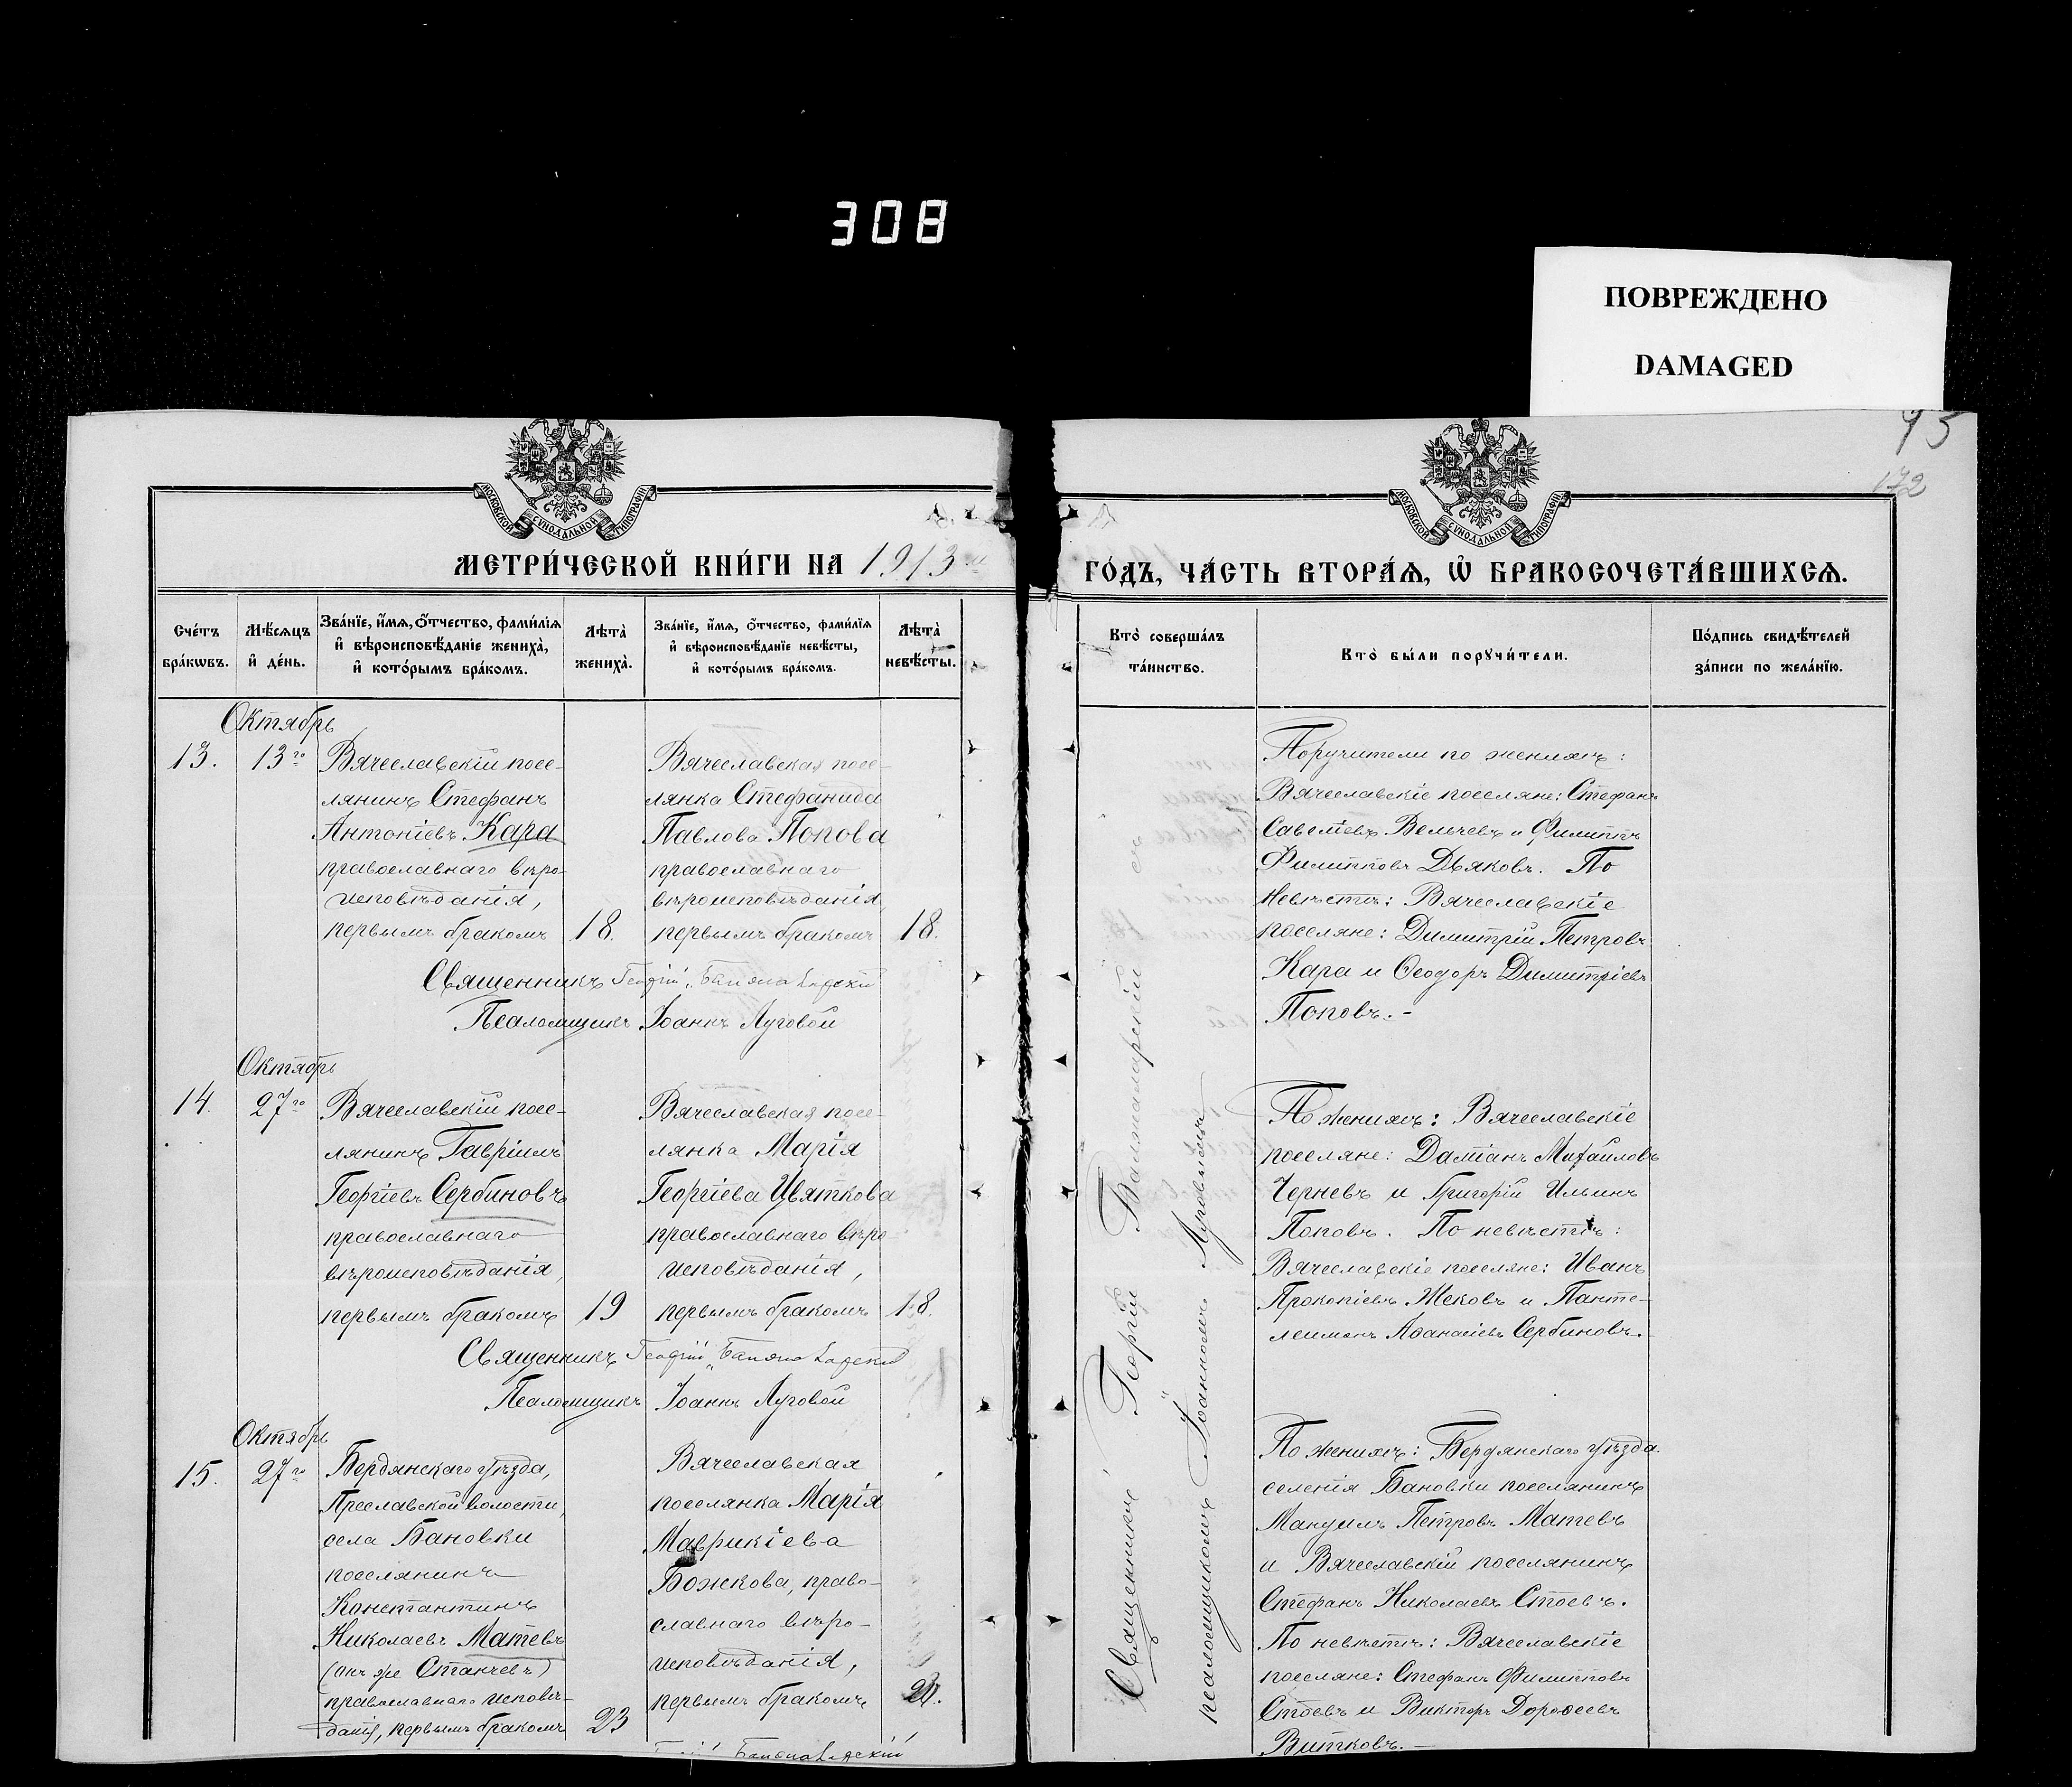 308
ПОВРЕЖДЕНО
DAMAGED
95
172
МОСКОВСКОЙ СѴНОДАЛЬНОЙ ТИПОГРАФІИ
МЕТРИ́ЧЕСКОЙ КНИ́ГИ НА 1913й
Сче́тъ бра́кѡвъ.
Мѣ́сяцъ и҆ де́нь.
Зва́нїе, и҆́мѧ, ѻ҆́тчество, фами́лїѧ
и҆ вѣроисповѣ́данїе жениха̀,
и҆ кото́рымъ бра́комъ.
Лѣта̀ жениха̀.
Зва́нїе, и҆́мѧ, ѻ҆́тчество, фами́лїѧ
и҆ вѣроисповѣ́данїе невѣ́сты,
и҆ кото́рымъ бра́комъ.
Лѣта̀ невѣ́сты.
Октябрь
13.
13го
Вячеславскій посе-
лянинъ Стефанъ
Антоніевъ Кара
православнаго вѣро-
исповѣданія,
первымъ бракомъ
18.
Вячеславская посе-
лянка Стефанида
Павлова Попова
православнаго
вѣроисповѣданія
первымъ бракомъ
18.
Священникъ Георгій
Псаломщикъ Іоаннъ Луговой
Октябрь
14.
27го
Вячеславскій посе-
лянинъ Гавріилъ
Георгіевъ Сербиновъ
православнаго
вѣроисповѣданія,
первымъ бракомъ
19
Вячеславская посе-
лянка Марія
Георгіева Цвяткова
православнаго вѣро
исповѣданія,
первымъ бракомъ
18.
Священникъ Георгій
Псаломщикъ Іоаннъ Луговой
Октябрь
15.
27го
Бердянскаго уѣзда,
Преславской волости,
села Бановки
поселянинъ
Константинъ
Николаевъ Матевъ
(онъ же Станчевъ)
православнаго исповѣ-
данія, первымъ бракомъ
23
Вячеславская
поселянка Марія
Маврикіева
Божкова, право-
славнаго вѣро-
исповѣданія,
первымъ бракомъ
МОСКОВСКОЙ СѴНОДАЛЬНОЙ ТИПОГРАФІИ
ГО́ДЪ, ЧА́СТЬ ВТОРА́Ѧ, Ѡ҆ БРАКОСОЧЕТА́ВШИХСѦ.
Кто̀ соверша́лъ
та́инство.
Кто̀ бы́ли порꙋчи́тели.
По́дпись свидѣ́телей
за́писи по жела́нїю.
Священникъ Георгій съ
псаломщикомъ Іоанномъ Луговымъ
Поручители по женихѣ:
Вячеславскіе поселяне: Стефанъ
Савеліевъ Вельчевъ и Филиппъ
Филипповъ Дьяковъ. По
невѣстѣ: Вячеславскіе
поселяне: Димитрій Петровъ
Кара и Ѳеодоръ Димитріевъ
Поповъ.-
По женихѣ: Вячеславскіе
поселяне: Даміанъ Михайловъ
Черневъ и Григорій Ильинъ
Поповъ. По невѣстѣ:
Вячеславскіе поселяне: Иванъ
Прокопіевъ Жековъ и Панте-
леимонъ Аѳанасіевъ Сербиновъ.
По женихѣ: Бердянскаго уѣзда
селенія Бановки поселянинъ
Мануилъ Петровъ Матевъ
и Вячеславскій поселянинъ
Стефанъ Николаевъ Стоевъ.
По невѣстѣ: Вячеславскіе
поселяне: Стефанъ Филипповъ
Стоевъ и Викторъ Дороѳеевъ
Витковъ.-